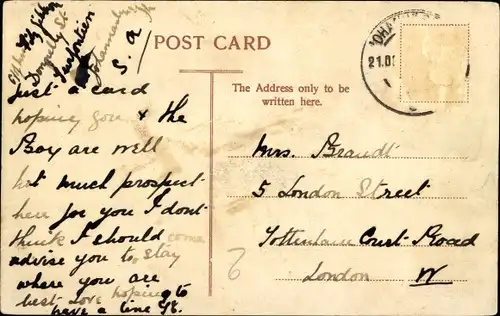 Donnelly St
Turffontein
Johannesburg
S. A
POST CARD
The Address only to be
written here.
JOHA
21.D
Just a card
hoping you & the
Boy are well
not much prospect
here for you I dont
think I should come
advise you to stay
where you are
best love hoping to
have a line
Mrs. Brandt
5 London Street
Tottenham Court Road
London W